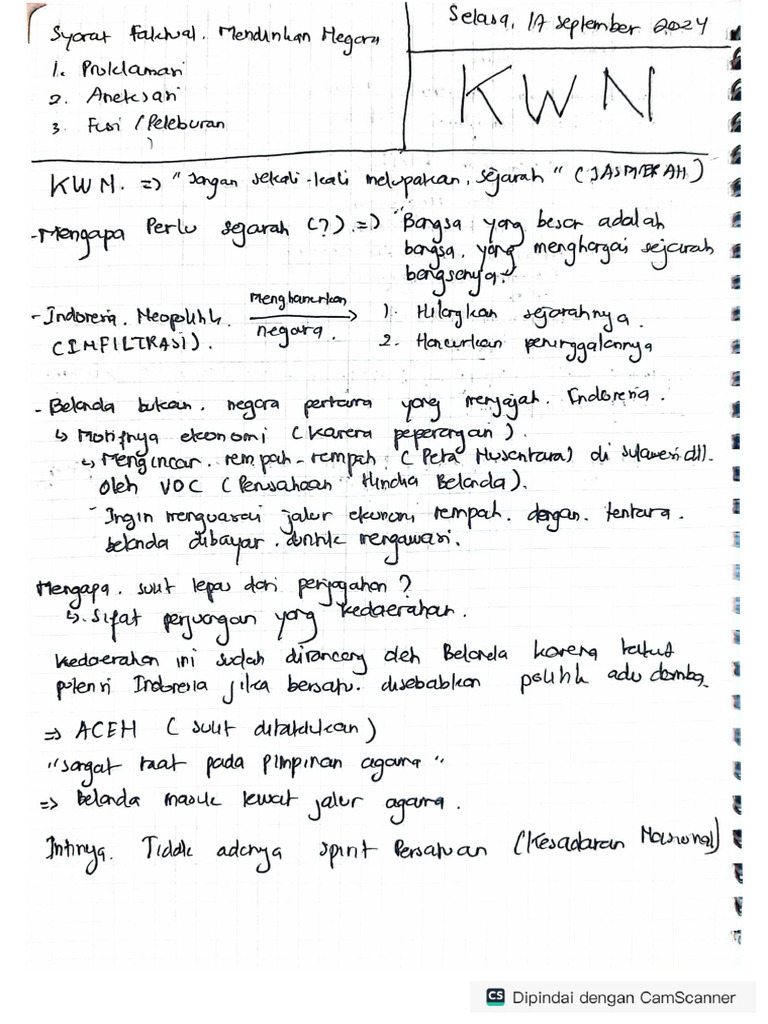 Syarat Faktual. Mendirikan Negara
1. Proklamasi
2. Aneksasi
3. Fusi / Peleburan
Selasa, 17 September 2024
KWN
KWN. => "Jangan sekali-kali melupakan, sejarah" (JASMERAH)
- Mengapa Perlu sejarah (?). => "Bangsa yang besar adalah
bangsa, yang menghargai sejarah
bangsanya."
- Indonesia. Neopolitik. Menghancurkan 1. Hilangkan sejarahnya.
(INFILTRASI). negara. 2. Hancurkan peninggalannya
- Belanda bukan. negara pertama yang menjajah. Indonesia.
↳ Motifnya ekonomi (karena peperangan).
↳ Mengincar. rempah-rempah. (Peta Nusantara) di sulawesi dll.
oleh VOC (Perusahaan Hindia Belanda).
- Ingin menguasai jalur ekonomi rempah. dengan. tentara.
belanda dibayar. untuk mengawasi.
Mengapa. sulit lepas dari penjajahan?
↳. Sifat perjuangan yang kedaerahan.
kedaerahan ini sudah dirancang oleh Belanda karena takut
potensi Indonesia jika bersatu. disebabkan politik adu domba.
=> ACEH (sulit ditaklukan)
"sangat taat pada pimpinan agama"
=> Belanda masuk lewat jalur agama.
Intinya. Tidak adanya spirit Persatuan (Kesadaran Nasional)
CS Dipindai dengan CamScanner